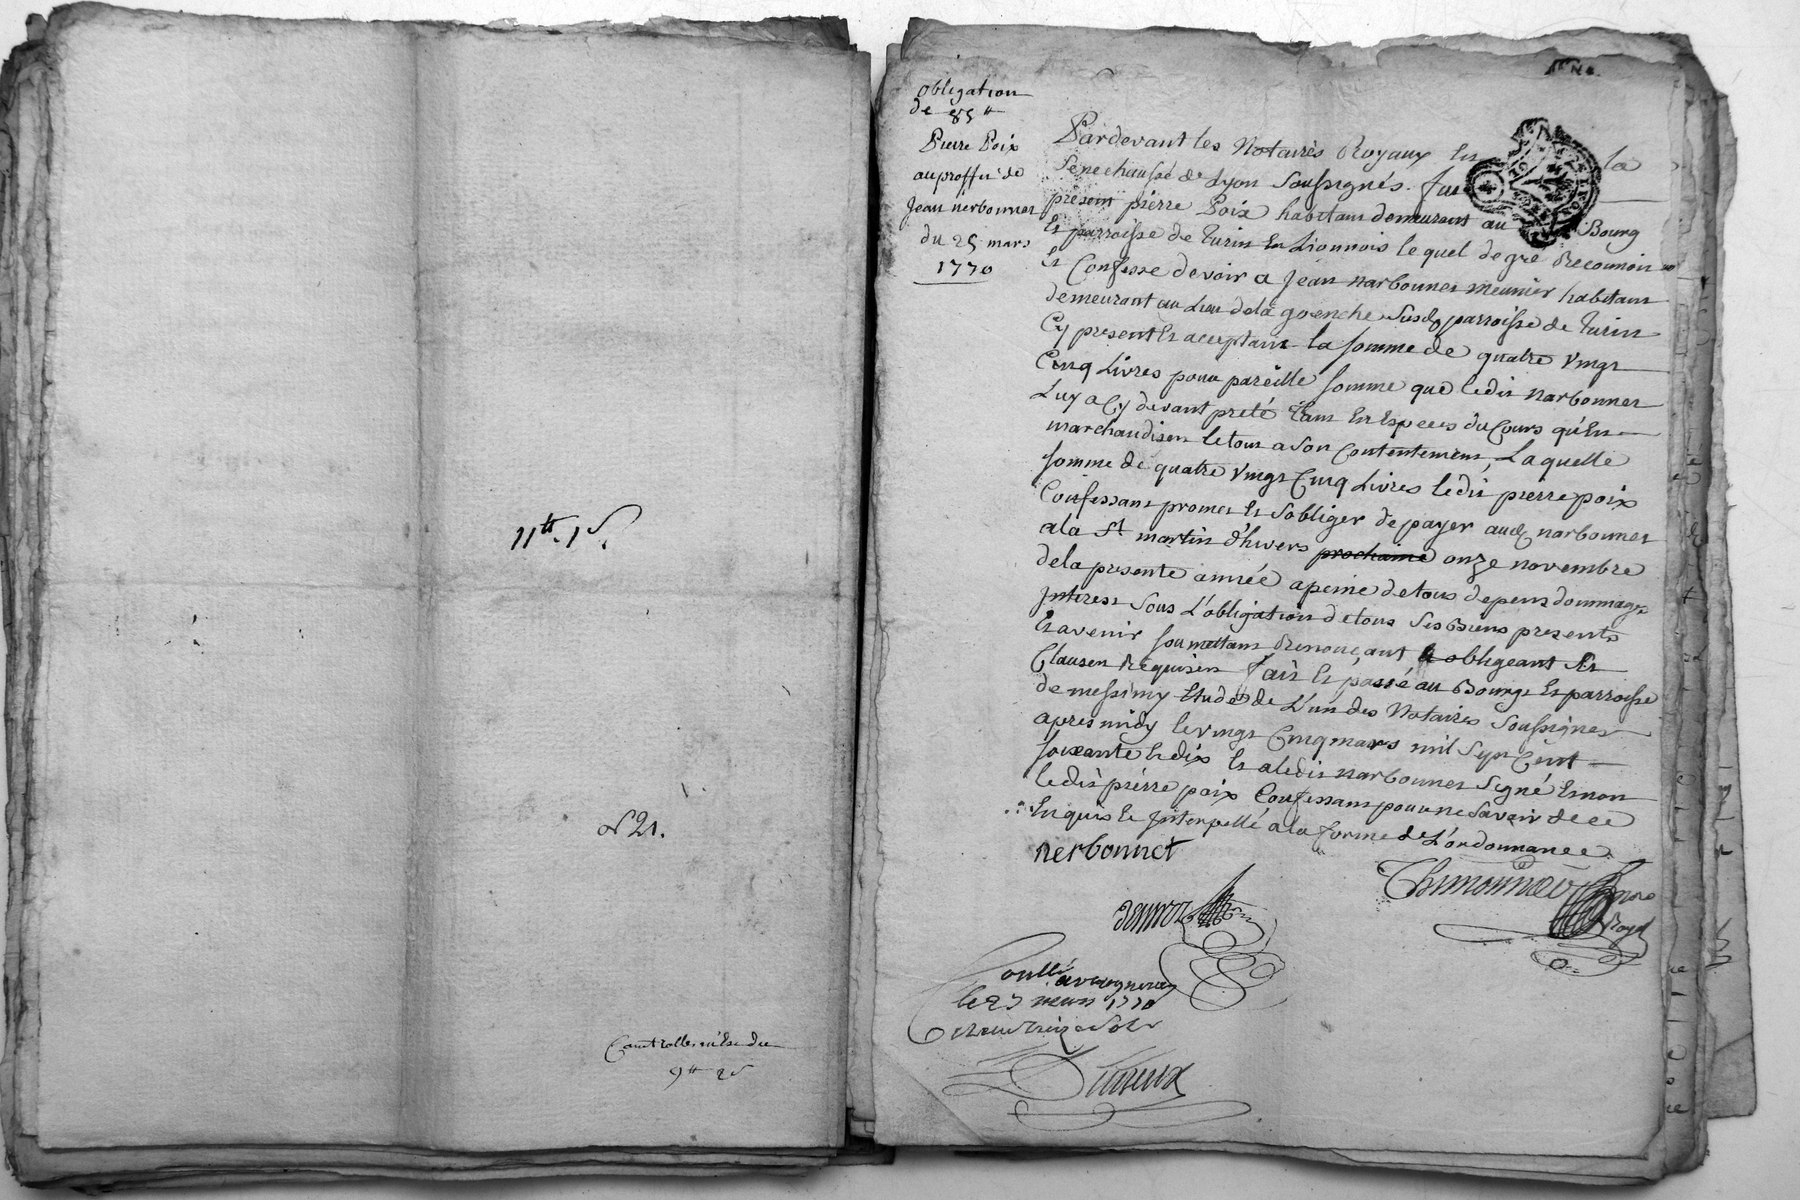 11tt. 1s.
N 21.
Controlle
9tt 2s
obligation
de 85tt
Pierre Poix
au proffit de
Jean nerbonnet
du 25 mars
1770
Pardevant les Notaires Royaux en la
Senechaussé de Lyon Soussignés. fut
présent pierre Poix habitant demeurant au Bourg
et parroisse de Turin en Lionnois lequel de gré Reconnoit
et Confesse devoir a Jean narbonnet meunier habitant
demeurant au Lieu dela goenche Susde parroisse de Turin
Cy present et acceptant la somme de quatre vingt
Cinq Livres pour pareille somme que ledit narbonnet
Luy a Cy devant preté tant en Especes du Cours qu'en
marchandises le tout a Son Contentement, Laquelle
somme de quatre vingt Cinq Livres ledit pierre poix
Confessant promet et Sobliger de payer aud. narbonnet
ala St martin d'hivers prochaine onze novembre
dela presente année a peine de tous depens dommages
Interest Sous L'obligation de tous Ses Biens presents
Et avenir soumettant Renonçant et obligeant Et
Clauses Requises fait et passé au Bourg et parroisse
de messimy Etude de L'un des Notaires Soussignes
apres midy le vingt Cinq mars mil Sept Cent
soixante et dix et a ledit narbonnet Signé et non
ledit pierre poix Confessant pour ne Savoir de ce
Enquis et Interpellé a la forme de L'ordonnance.
nerbonnet
Thimonnier
Royal
le 27 mars 1770